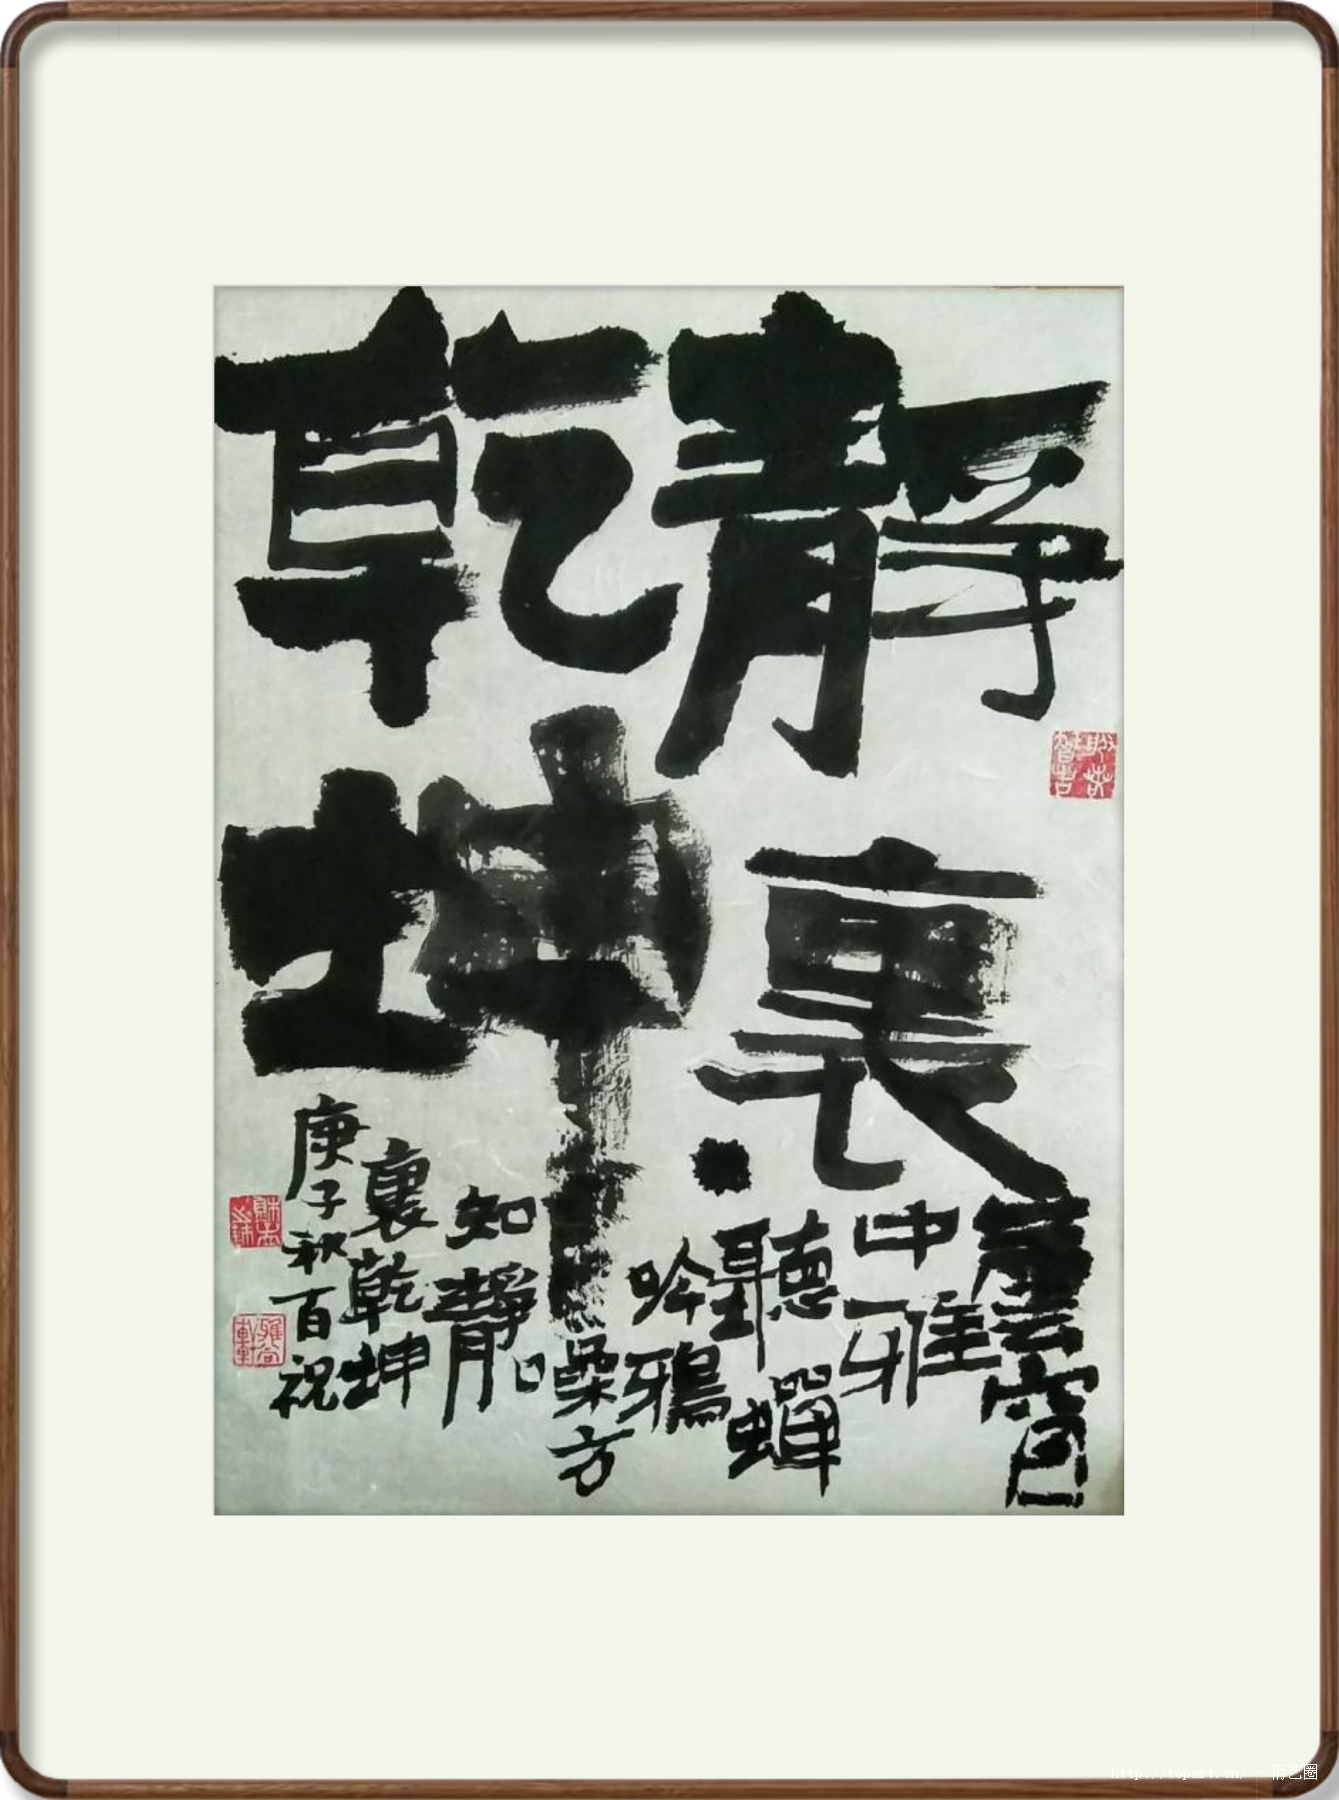 靜裏
乾坤
中雅
聽蟬
吟鴉
噪方
知靜
裏乾坤
庚子秋百祝
http://tspart.cn/